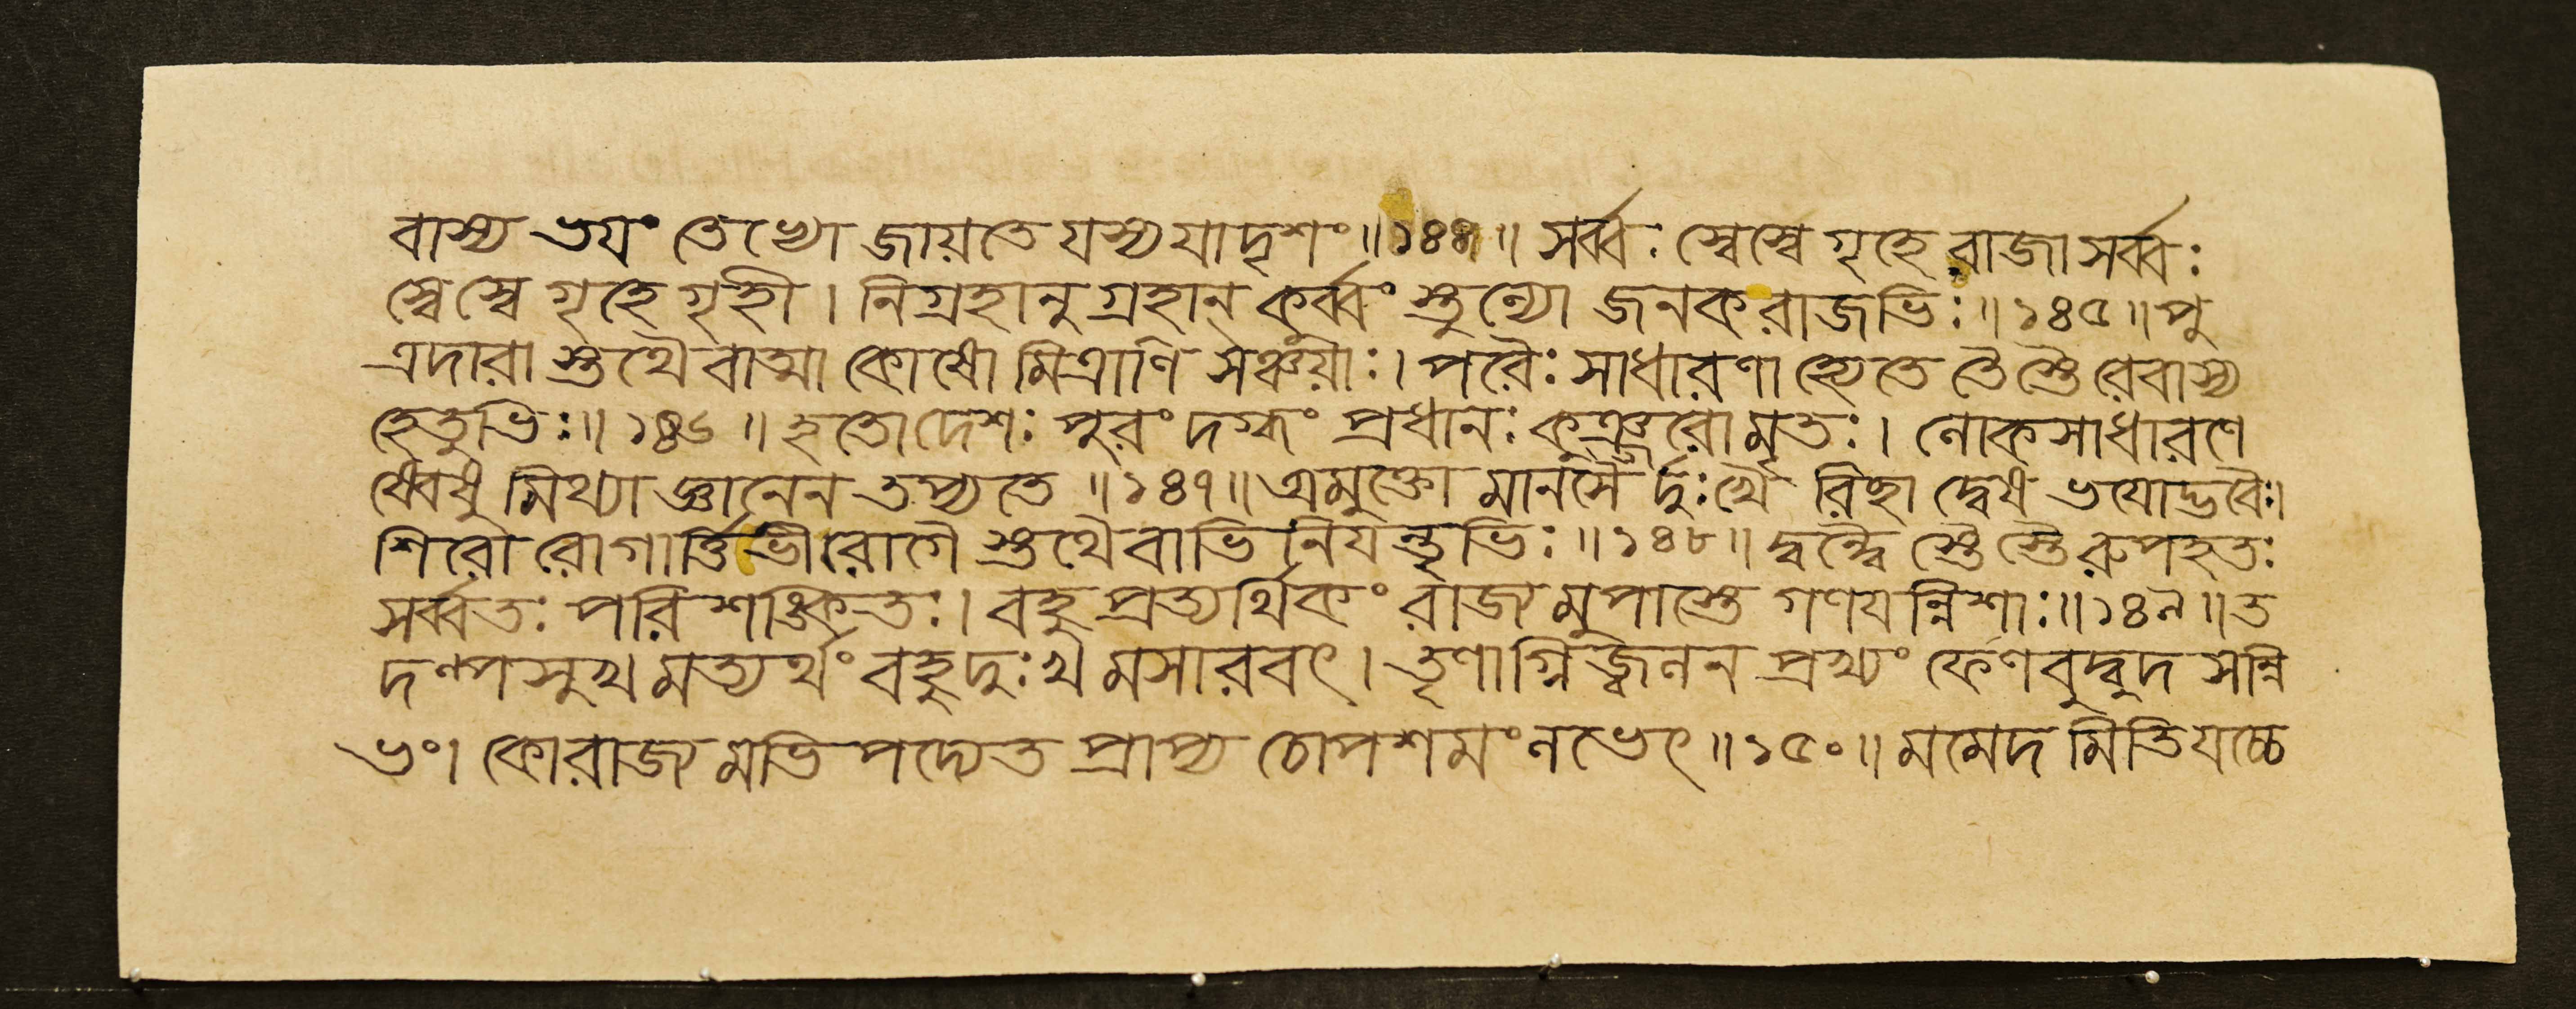 বাস্য ভযং তেভ্যো জায়তে যস্য যাদৃশং ॥ ১৪৪ ॥ সর্ব্বঃ স্বেস্বে গৃহে রাজা সর্ব্বঃ
স্বে স্বে গৃহে গৃহী । নিগ্রহানু গ্রহান্ কুর্ব্বং স্তুল্যো জনক রাজভিঃ ॥ ১৪৫ ॥ পু
ত্রদারা স্তথৈবাত্মা কোষো মিত্রাণি সঞ্চয়াঃ । পরৈঃ সাধারণা হ্যেতে তৈস্তৈ রেবাস্য
হেতুভিঃ ॥ ১৪৬ ॥ হতো দেশঃ পুরং দগ্ধং প্রধানঃ কুঞ্জরো মৃতঃ । লোকসাধারণে
ষ্বেষু মিথ্যা জ্ঞানেন তপ্যতে ॥ ১৪৭ ॥ অমুক্তো মানসৈ র্দুঃখৈ রিছা দ্বেষ ভযোদ্ভবৈঃ।
শিরো রোগার্ত্তিভী রোগৈ স্তথৈবাভি নিযন্তৃভিঃ ॥ ১৪৮ ॥ দ্বন্দ্বৈ স্তৈ স্তৈরুপহতঃ
সর্ব্বতঃ পরি শঙ্কিতঃ । বহু প্রত্যর্থিকং রাজ্য মুপাস্তে গণযন্নিশাঃ ॥ ১৪৯ ॥ ত
দল্পসুখ মত্যর্থং বহুদুঃখ মসারবৎ । তৃণাগ্নি জ্বলন প্রখ্যং ফেণবুদ্বুদ সন্নি
ভং। কো রাজ্য মভি পদ্যেত প্রাপ্য চোপশমং লভেৎ ॥ ১৫০ ॥ মমেদ মিতি যচ্চে